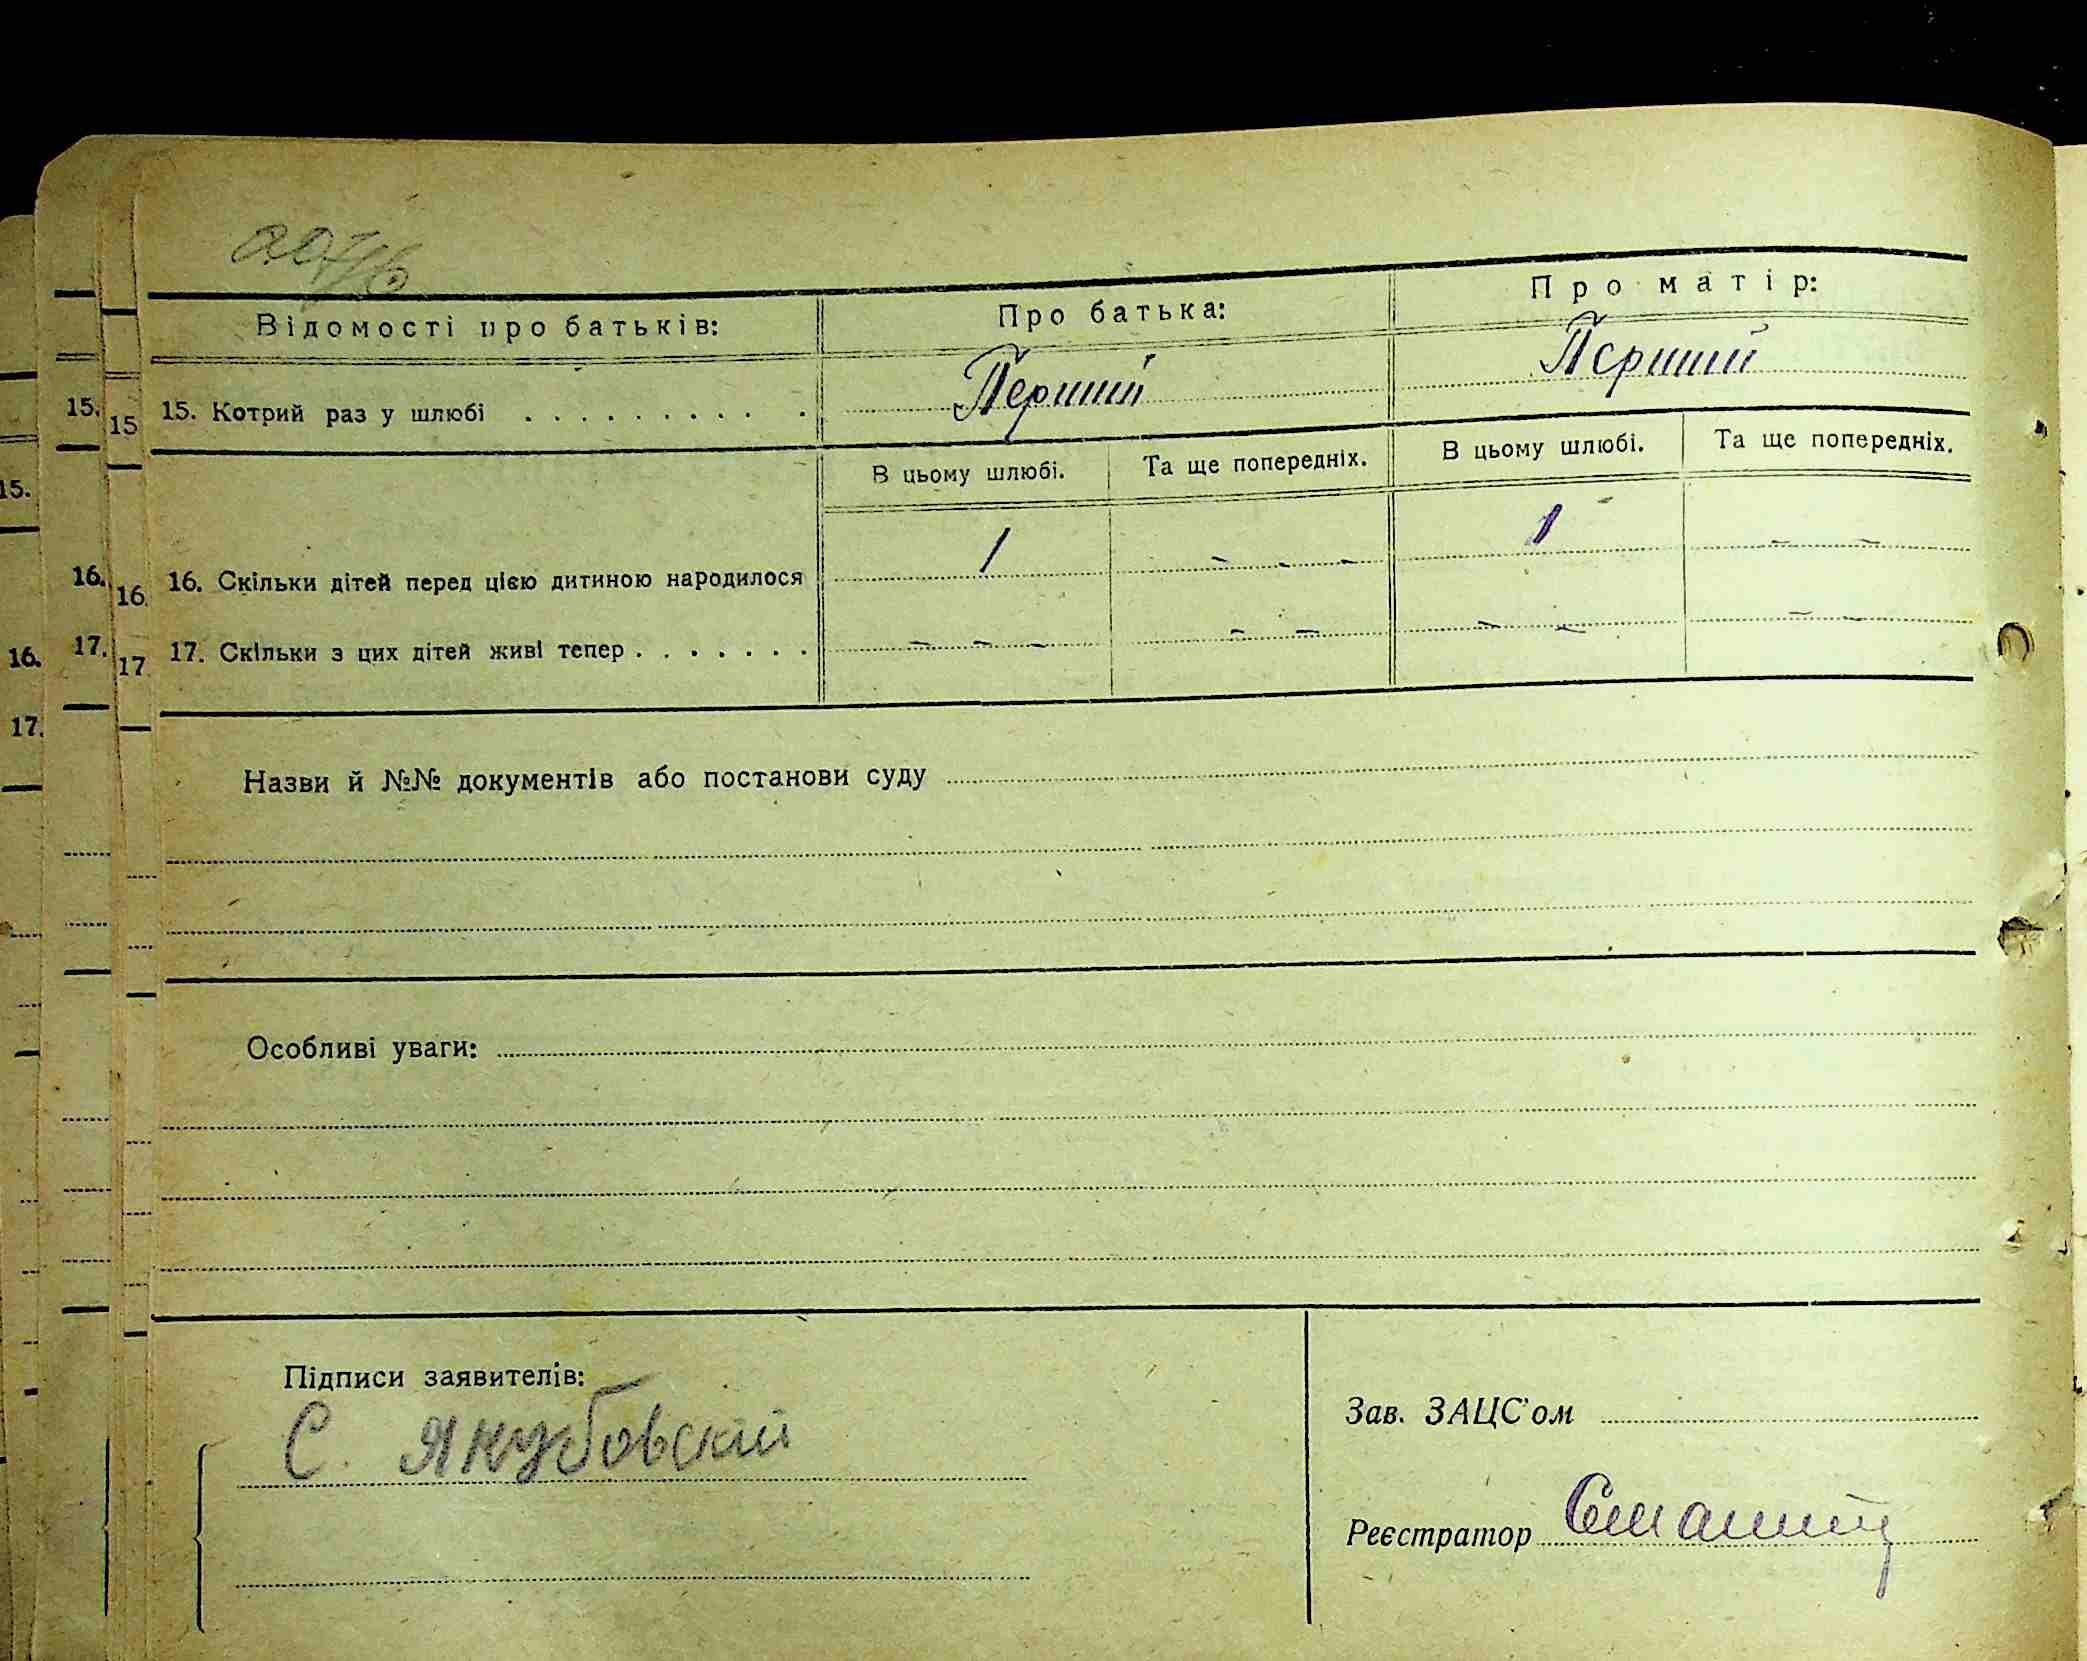 Відомості про батьків: Про батька: Про матір:
15. Котрий раз у шлюбі . . . . . . . . . . Перший Перший
В цьому шлюбі. Та ще попередніх. В цьому шлюбі. Та ще попередніх.
16. Скільки дітей перед цією дитиною народилося 1 - - - 1 - -
17. Скільки з цих дітей живі тепер . . . . . . . - - - - - - - - -
Назви й №№ документів або постанови суду
Особливі уваги:
Підписи заявителів:
С. Якубовский
Зав. ЗАЦС'ом
Реєстратор
15. 15
15.
16. 16.
17. 17
16.
17.